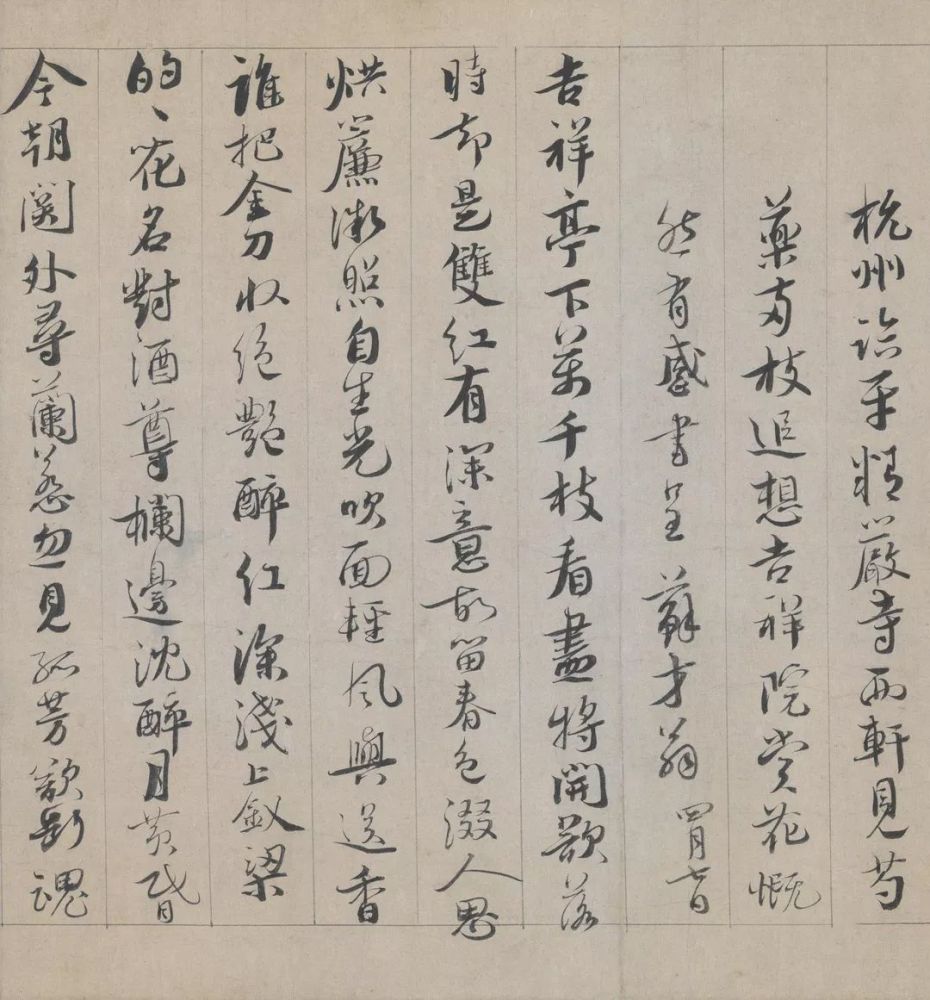 杭州临平精嚴寺西軒見芍
藥两枝追想吉祥院赏花慨
然有感書呈蘇才翁四月七日
吉祥亭下萬千枝看盡將開欲落
時却是雙紅有深意故留春色缀人思
烘簾微照自生光吹面輕風與送香
誰把金刀收绝艷醉紅深淺上釵梁
的、花名對酒尊欄邊沈醉月黄昏
今朝関外尋蘭蕙忽見孤芳欲斷魂